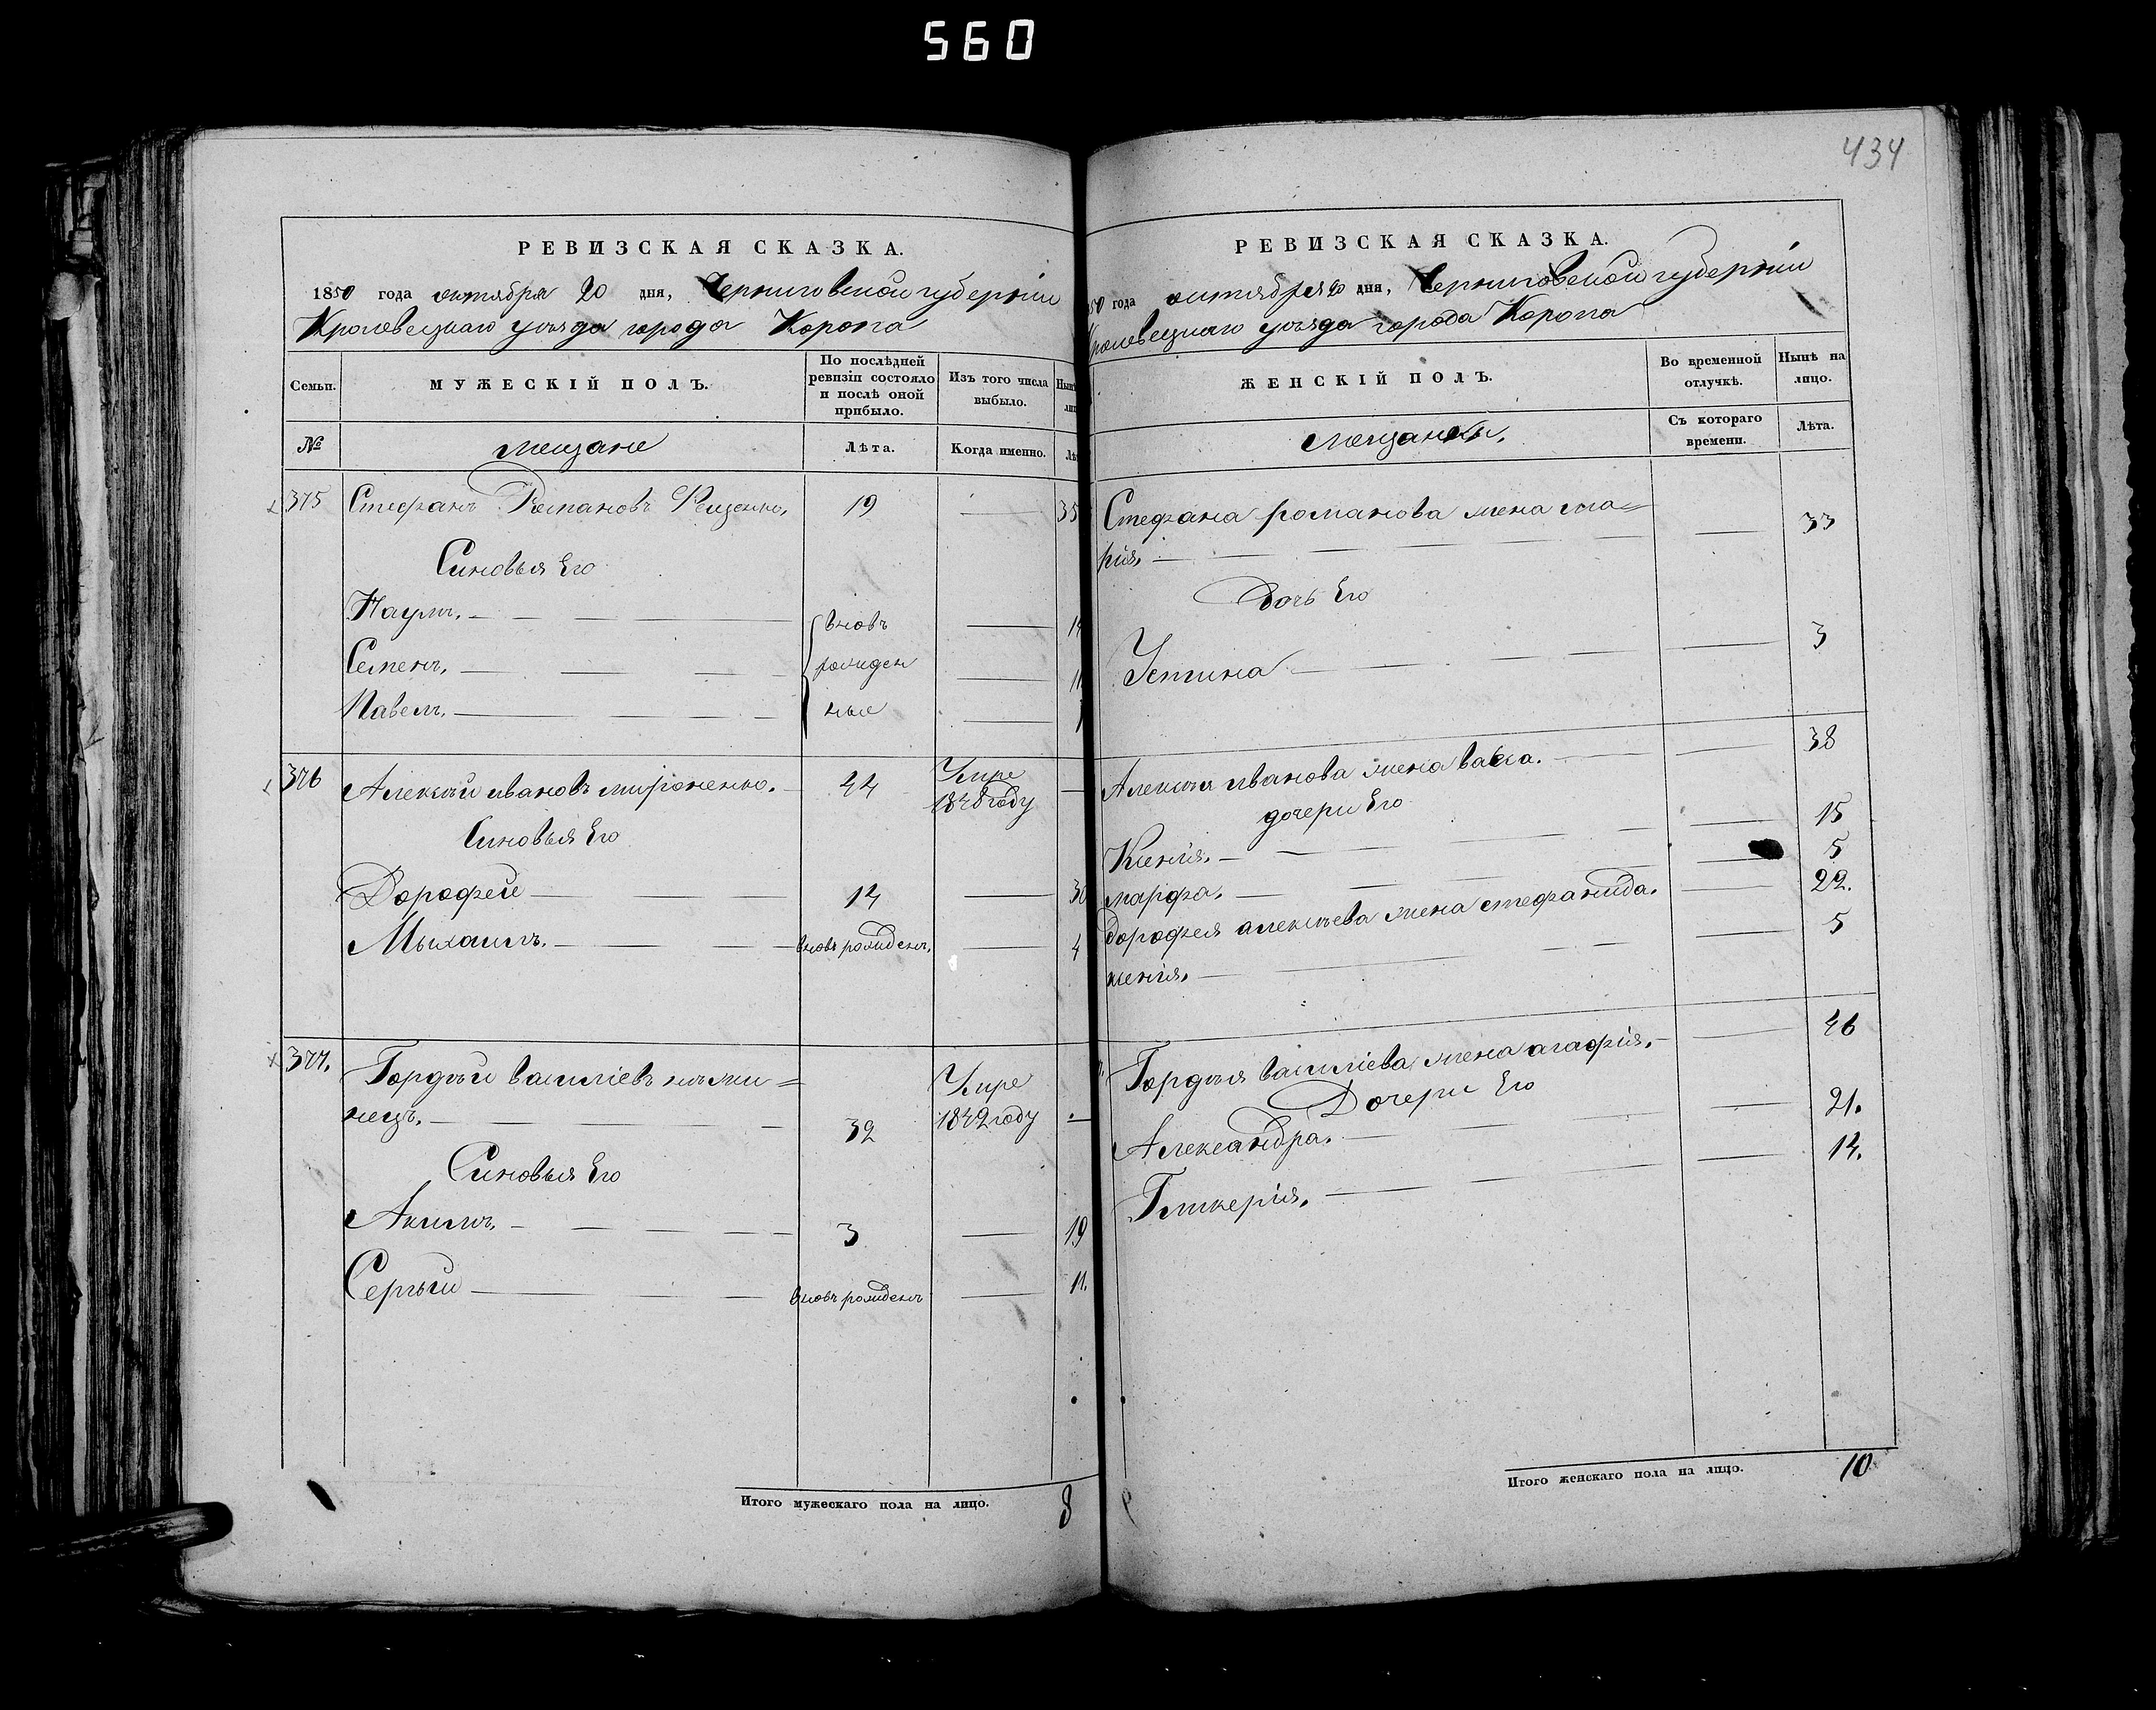 560
434
РЕВИЗСКАЯ СКАЗКА.
1850 года октября 20 дня, Черниговской губерніи
Кролевецкаго уѣзда города Коропа
Семьи.
МУЖЕСКІЙ ПОЛЪ.
По послѣдней ревизіи состояло и послѣ оной прибыло.
Изъ того числа выбыло.
№
мещане
Лѣта.
Когда именно.
375 Стефанъ Романовъ 19 — 35
Синовья Его
Наумъ. — вновь —
Семенъ. — рожден —
Павелъ. — ные —
376 Алексѣй ивановъ мироненко. 44 Умре 1848 году —
Синовья Его
Дорофей — 14 — 30
Мыхаилъ. — вновь рожденъ, — 4
377. Гордѣй василіевъ
нецъ. — 32 Умре 1842 году —
Синовья Его
Акимъ. — 3 — 19
Сергѣй — вновь рожденъ — 11.
Итого мужескаго пола на лицо. 8
РЕВИЗСКАЯ СКАЗКА.
50 года октября 20 дня, Черниговской губерніи
Кролевецкаго уѣзда города Коропа
ЖЕНСКІЙ ПОЛЪ.
Во временной отлучкѣ.
Нынѣ на лицо.
мещанки.
Съ котораго времени.
Лѣта.
Стефана романова жена ма=
рія. — 33
Дочь Его
Устина — 3
Алексѣя иванова жена васса. — 38
дочери Его
Ксенія. — 15
марфа. — 5
дорофея алексѣева жена стефанида. — 22.
ксенія. — 5
Гордѣя василіева жена агафія. — 46
Дочери Его
Александра. — 21.
Гликерія. — 14.
Итого женскаго пола на лицо. 10